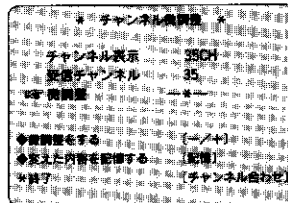 * チャンネル微調整 *
チャンネル表示 39CH
受信チャンネル 35
☞ 微調整 ——*——
◆微調整をする [−/+]
◆変えた内容を記憶する [記憶]
*終了 [チャンネル合わせ]